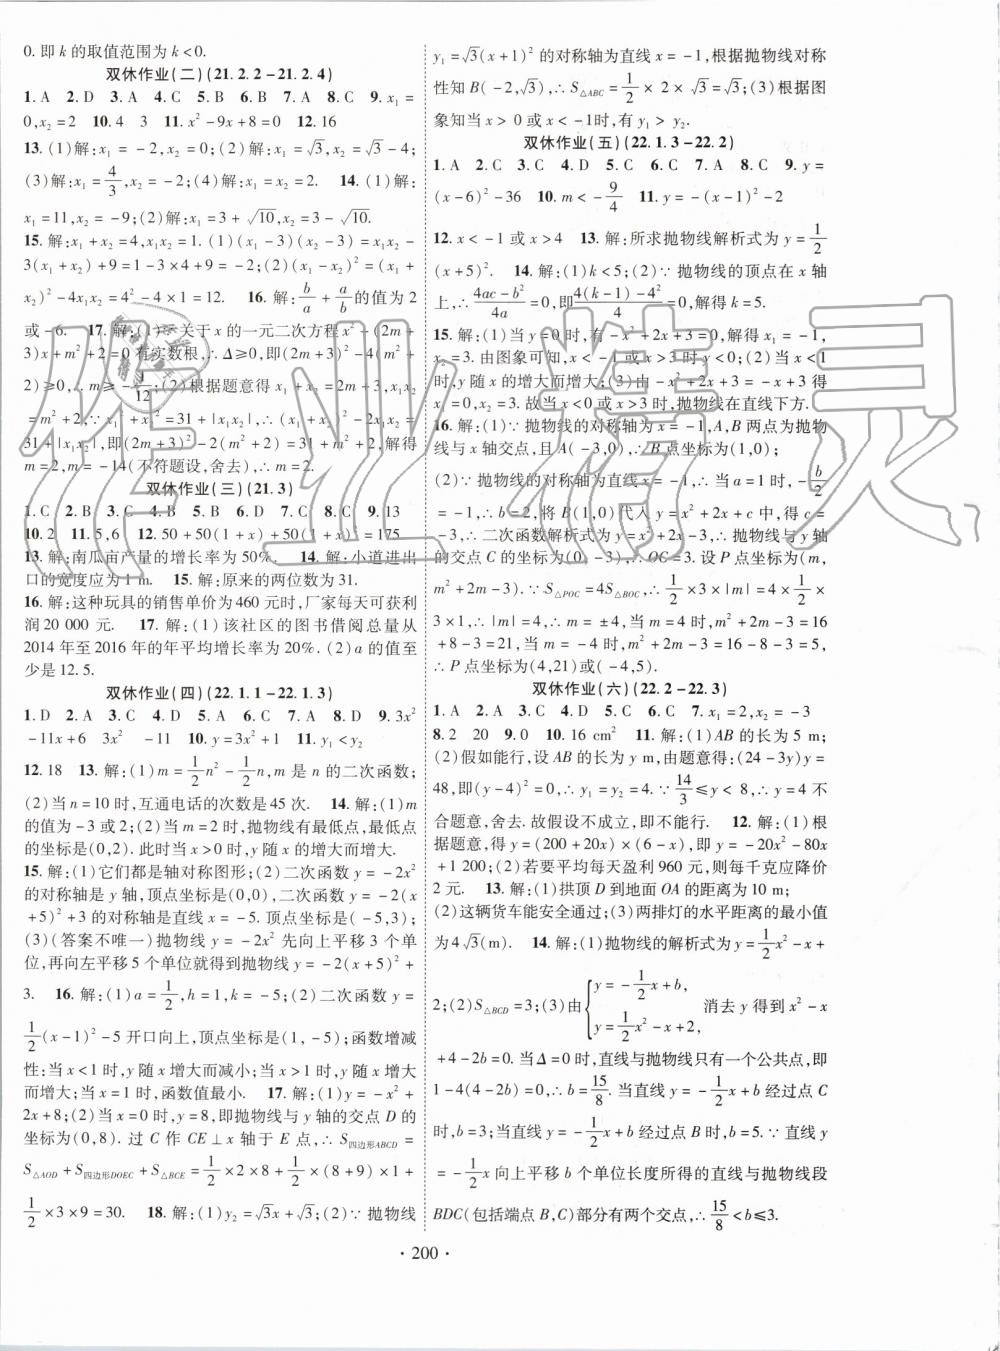 0. 即 k 的取值范围为 k<0.
双休作业(二)(21.2.2-21.2.4)
1. A 2. D 3. A 4. C 5. B 6. B 7. A 8. C 9. x₁=
0,x₂=2 10. 4 3 11. x²-9x+8=0 12. 16
13. (1)解:x₁=-2,x₂=0;(2)解:x₁=√3,x₂=√3-4;
(3)解:x₁=4/3,x₂=-2;(4)解:x₁=x₂=2. 14. (1)解:
x₁=11,x₂=-9;(2)解:x₁=3+√10,x₂=3-√10.
15. 解:x₁+x₂=4,x₁x₂=1. (1)(x₁-3)(x₂-3)=x₁x₂-
3(x₁+x₂)+9=1-3×4+9=-2;(2)(x₁-x₂)²=(x₁+
x₂)²-4x₁x₂=4²-4×1=12. 16. 解:b/a+a/b的值为 2
或-6. 17. 解:(1)∵关于 x 的一元二次方程 x²-(2m+
3)x+m²+2=0 有实数根,∴Δ≥0,即(2m+3)²-4(m²+
2)≥0,∴m≥-1/12;(2)根据题意得 x₁+x₂=2m+3,x₁x₂
=m²+2,∵x₁²+x₂²=31+|x₁x₂|,∴(x₁+x₂)²-2x₁x₂=
31+|x₁x₂|,即(2m+3)²-2(m²+2)=31+m²+2,解得
m=2,m=-14(不符题设,舍去),∴m=2.
双休作业(三)(21.3)
1. C 2. B 3. C 4. B 5. C 6. D 7. C 8. C 9. 13
10. 2 11. 5,6 12. 50+50(1+x)+50(1+x)²=175
13. 解:南瓜亩产量的增长率为 50%. 14. 解:小道进出
口的宽度应为 1 m. 15. 解:原来的两位数为 31.
16. 解:这种玩具的销售单价为 460 元时,厂家每天可获利
润 20 000 元. 17. 解:(1)该社区的图书借阅总量从
2014 年至 2016 年的年平均增长率为 20%. (2)a 的值至
少是 12.5.
双休作业(四)(22.1.1-22.1.3)
1. D 2. A 3. C 4. D 5. A 6. C 7. A 8. D 9. 3x²
-11x+6 3x² -11 10. y=3x²+1 11. y₁<y₂
12. 18 13. 解:(1)m=1/2n²-1/2n,m 是 n 的二次函数;
(2)当 n=10 时,互通电话的次数是 45 次. 14. 解:(1)m
的值为-3 或 2;(2)当 m=2 时,抛物线有最低点,最低点
的坐标是(0,2). 此时当 x>0 时,y 随 x 的增大而增大.
15. 解:(1)它们都是轴对称图形;(2)二次函数 y=-2x²
的对称轴是 y 轴,顶点坐标是(0,0),二次函数 y=-2(x
+5)²+3 的对称轴是直线 x=-5. 顶点坐标是(-5,3);
(3)(答案不唯一)抛物线 y=-2x² 先向上平移 3 个单
位,再向左平移 5 个单位就得到抛物线 y=-2(x+5)²+
3. 16. 解:(1)a=1/2,h=1,k=-5;(2)二次函数 y=
1/2(x-1)²-5 开口向上,顶点坐标是(1,-5);函数增减
性:当 x<1 时,y 随 x 增大而减小;当 x>1 时,y 随 x 增大
而增大;当 x=1 时,函数值最小. 17. 解:(1)y=-x²+
2x+8;(2)当 x=0 时,y=8,即抛物线与 y 轴的交点 D 的
坐标为(0,8). 过 C 作 CE⊥x 轴于 E 点,∴S四边形ABCD=
S△AOD+S四边形DOEC+S△BCE=1/2×2×8+1/2×(8+9)×1+
1/2×3×9=30. 18. 解:(1)y₂=√3x+√3;(2)∵抛物线
y₁=√3(x+1)² 的对称轴为直线 x=-1,根据抛物线对称
性知 B(-2,√3),∴S△ABC=1/2×2×√3=√3;(3)根据图
象知当 x>0 或 x<-1时,有 y₁>y₂.
双休作业(五)(22.1.3-22.2)
1. A 2. C 3. C 4. D 5. C 6. D 7. A 8. C 9. y=
(x-6)²-36 10. m<-9/4 11. y=-(x-1)²-2
12. x<-1 或 x>4 13. 解:所求抛物线解析式为 y=1/2
(x+5)². 14. 解:(1)k<5;(2)∵抛物线的顶点在 x 轴
上,∴(4ac-b²)/4a=0,即(4(k-1)-4²)/4=0,解得 k=5.
15. 解:(1)当 y=0 时,有-x²+2x+3=0,解得 x₁=-1,
x₂=3. 由图象可知,x<-1 或 x>3 时 y<0;(2)当 x<1
时,y 随 x 的增大而增大;(3)由-x²+2x+3=3,解得
x₁=0,x₂=2. 当 x<0 或 x>3 时,抛物线在直线下方.
16. 解:(1)∵抛物线的对称轴为 x=-1,A,B 两点为抛物
线与 x 轴交点,且 A(-3,0),∴B 点坐标为(1,0);
(2)∵抛物线的对称轴为直线 x=-1,∴当 a=1 时,-b/2
=-1,∴b=2,将 B(1,0)代入 y=x²+2x+c 中,得 c=
-3,∴二次函数解析式为 y=x²+2x-3,∴抛物线与 y 轴
的交点 C 的坐标为(0,-3),∴OC=3. 设 P 点坐标为(m,
m²+2m-3). ∵S△POC=4S△BOC,∴1/2×3×|m|=4×1/2×
3×1,∴|m|=4,∴m=±4;当 m=4 时,m²+2m-3=16
+8-3=21,当 m=-4 时,m²+2m-3=16-8-3=5,
∴P 点坐标为(4,21)或(-4,5).
双休作业(六)(22.2-22.3)
1. A 2. A 3. C 4. D 5. C 6. C 7. x₁=2,x₂=-3
8. 2 20 9. 0 10. 16 cm² 11. 解:(1)AB 的长为 5 m;
(2)假如能行,设 AB 的长为 y m,由题意得:(24-3y)y=
48,即(y-4)²=0,∴y₁=y₂=4. ∵14/3≤y<8,∴y=4 不
合题意,舍去. 故假设不成立,即不能行. 12. 解:(1)根
据题意,得 y=(200+20x)×(6-x),即 y=-20x²-80x
+1 200;(2)若要平均每天盈利 960 元,则每千克应降价
2 元. 13. 解:(1)拱顶 D 到地面 OA 的距离为 10 m;
(2)这辆货车能安全通过;(3)两排灯的水平距离的最小值
为 4√3(m). 14. 解:(1)抛物线的解析式为 y=1/2x²-x+
2;(2)S△BCD=3;(3)由{y=-1/2x+b, y=1/2x²-x+2, 消去 y 得到 x²-x
+4-2b=0. 当 Δ=0 时,直线与抛物线只有一个公共点,即
1-4(4-2b)=0,∴b=15/8. 当直线 y=-1/2x+b 经过点 C
时,b=3;当直线 y=-1/2x+b 经过点 B 时,b=5. ∵直线
y=-1/2x 向上平移 b 个单位长度所得的直线与抛物线段
BDC(包括端点 B,C)部分有两个交点,∴15/8<b≤3.
· 200 ·
作业精灵